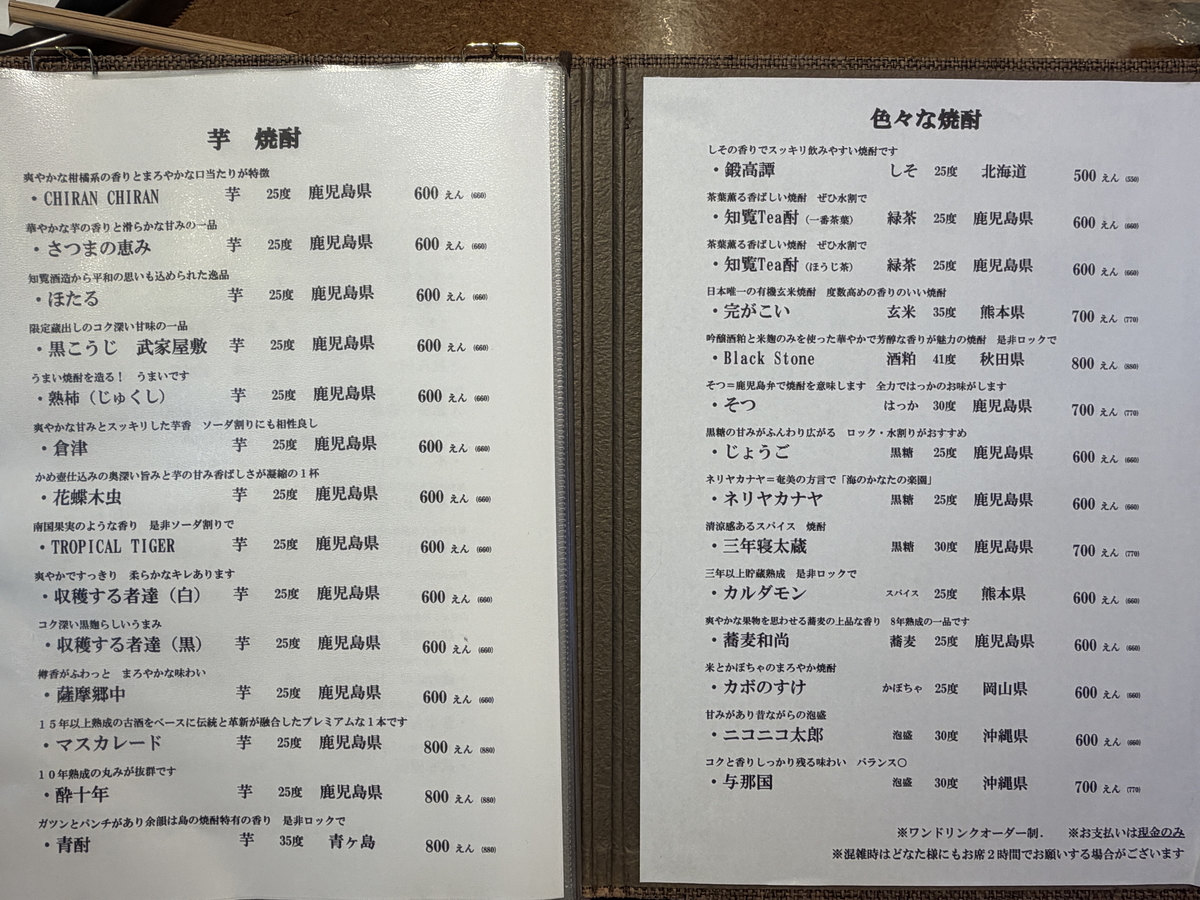 芋　焼酎
爽やかな柑橘系の香りとまろやかな口当たりが特徴
・CHIRAN CHIRAN　芋　25度　鹿児島県　600 えん (660)
華やかな芋の香りと滑らかな甘みの一品
・さつまの恵み　芋　25度　鹿児島県　600 えん (660)
知覧酒造から平和の思いも込められた逸品
・ほたる　芋　25度　鹿児島県　600 えん (660)
限定蔵出しのコク深い甘味の一品
・黒こうじ　武家屋敷　芋　25度　鹿児島県　600 えん (660)
うまい焼酎を造る！　うまいです
・熟柿（じゅくし）　芋　25度　鹿児島県　600 えん (660)
爽やかな甘みとスッキリした芋香　ソーダ割りにも相性良し
・倉津　芋　25度　鹿児島県　600 えん (660)
かめ壺仕込みの奥深い旨みと芋の甘み香ばしさが凝縮の１杯
・花蝶木虫　芋　25度　鹿児島県　600 えん (660)
南国果実のような香り　是非ソーダ割りで
・TROPICAL TIGER　芋　25度　鹿児島県　600 えん (660)
爽やかですっきり　柔らかなキレあります
・収穫する者達（白）　芋　25度　鹿児島県　600 えん (660)
コク深い黒麹らしいうまみ
・収穫する者達（黒）　芋　25度　鹿児島県　600 えん (660)
樽香がふわっと　まろやかな味わい
・薩摩郷中　芋　25度　鹿児島県　600 えん (660)
１５年以上熟成の古酒をベースに伝統と革新が融合したプレミアムな１本です
・マスカレード　芋　25度　鹿児島県　800 えん (880)
１０年熟成の丸みが抜群です
・酔十年　芋　25度　鹿児島県　800 えん (880)
ガツンとパンチがあり余韻は島の焼酎特有の香り　是非ロックで
・青酎　芋　35度　青ヶ島　800 えん (880)
色々な焼酎
しその香りでスッキリ飲みやすい焼酎です
・鍛高譚　しそ　25度　北海道　500 えん (550)
茶葉薫る香ばしい焼酎　ぜひ水割で
・知覧Tea酎（一番茶葉）　緑茶　25度　鹿児島県　600 えん (660)
茶葉薫る香ばしい焼酎　ぜひ水割で
・知覧Tea酎（ほうじ茶）　緑茶　25度　鹿児島県　600 えん (660)
日本唯一の有機玄米焼酎　度数高めの香りのいい焼酎
・完がこい　玄米　35度　熊本県　700 えん (770)
吟醸酒粕と米麹のみを使った華やかで芳醇な香りが魅力の焼酎　是非ロックで
・Black Stone　酒粕　41度　秋田県　800 えん (880)
そつ＝鹿児島弁で焼酎を意味します　全力ではっかのお味がします
・そつ　はっか　30度　鹿児島県　700 えん (770)
黒糖の甘みがふんわり広がる　ロック・水割りがおすすめ
・じょうご　黒糖　25度　鹿児島県　600 えん (660)
ネリヤカナヤ＝奄美の方言で「海のかなたの楽園」
・ネリヤカナヤ　黒糖　25度　鹿児島県　600 えん (660)
清涼感あるスパイス　焼酎
・三年寝太蔵　黒糖　30度　鹿児島県　700 えん (770)
三年以上貯蔵熟成　是非ロックで
・カルダモン　スパイス　25度　熊本県　600 えん (660)
爽やかな果物を思わせる蕎麦の上品な香り　8年熟成の一品です
・蕎麦和尚　蕎麦　25度　鹿児島県　600 えん (660)
米とかぼちゃのまろやか焼酎
・カボのすけ　かぼちゃ　25度　岡山県　600 えん (660)
甘みがあり昔ながらの泡盛
・ニコニコ太郎　泡盛　30度　沖縄県　600 えん (660)
コクと香りしっかり残る味わい　バランス〇
・与那国　泡盛　30度　沖縄県　700 えん (770)
※ワンドリンクオーダー制．　※お支払いは現金のみ
※混雑時はどなた様にもお席２時間でお願いする場合がございます